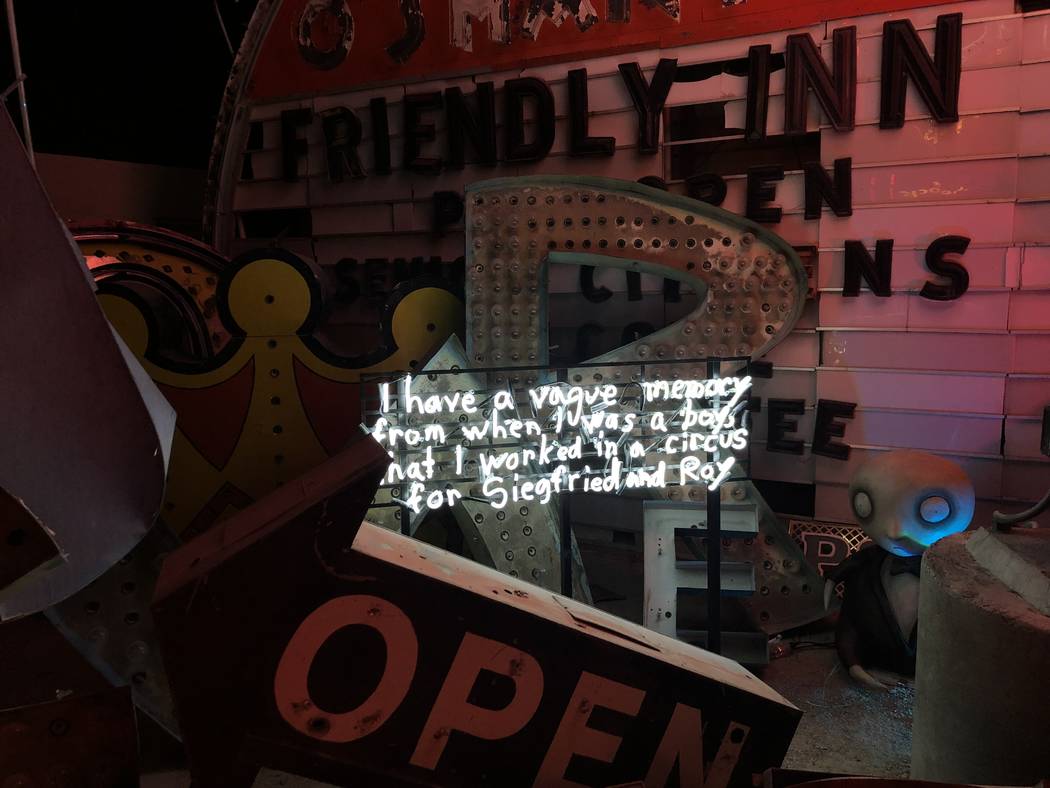 FRIENDLY INN
OPEN
ENS
R
I have a vague memory
from when I was a boy,
that I worked in a circus
for Siegfried and Roy
TEE
E
P
OPEN